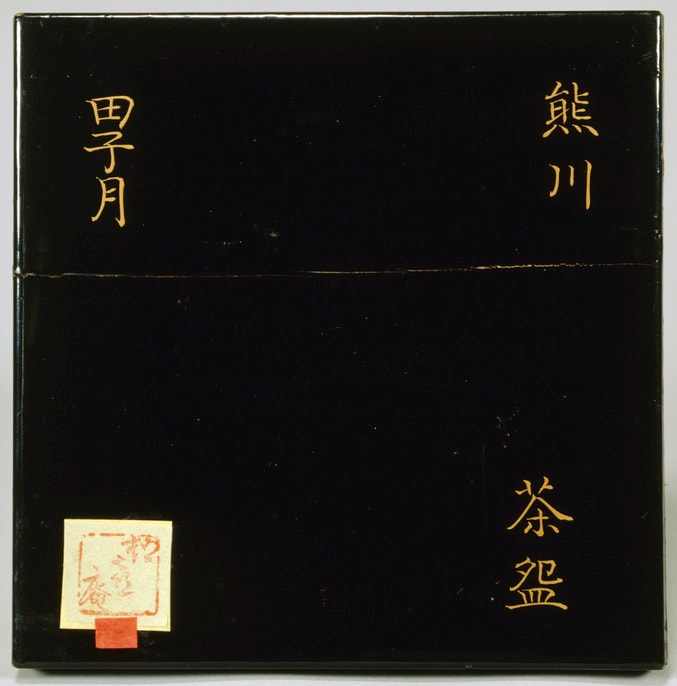 熊川
茶盌
田子月